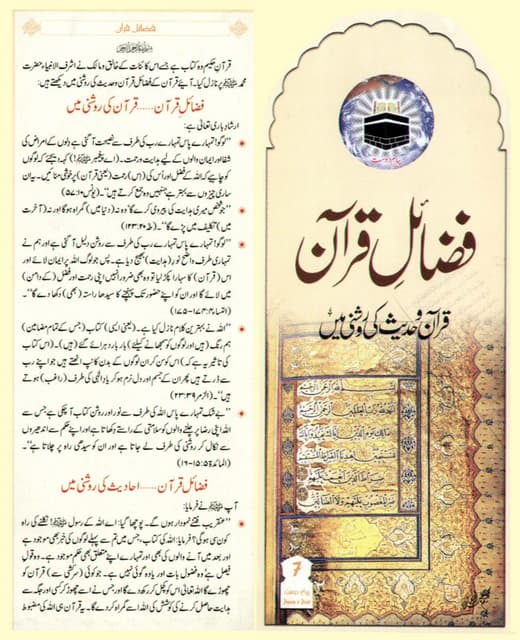 فضائل قرآن
بسم اللہ الرحمن الرحیم
قرآنِ حکیم وہ کتاب ہے جسے اس کائنات کے خالق و مالک نے اشرف الانبیاء حضرت
محمد ﷺ پر نازل کیا۔ آیئے قرآن کے فضائل قرآن و حدیث کی روشنی میں دیکھتے ہیں:
فضائلِ قرآن ...... قرآن کی روشنی میں
ارشادِ باری تعالیٰ ہے:
"لوگو! تمہارے پاس تمہارے رب کی طرف سے نصیحت آ گئی ہے دلوں کے امراض کی
شفا اور ایمان والوں کے لیے ہدایت و رحمت۔ (اے پیغمبر ﷺ!) کہہ دیجیے کہ لوگوں
کو چاہیے کہ اللہ کے فضل اور اُس کی (اس) رحمت (یعنی قرآن) پر خوشی منائیں۔ یہ ان
ساری چیزوں سے بہتر ہے جنہیں وہ جمع کرتے ہیں"۔ (یونس ۱۰:۵۷)
"جو شخص میری ہدایت کی پیروی کرے گا، وہ نہ (دنیا میں) گمراہ ہوگا اور نہ (آخرت
میں) تکلیف میں پڑے گا"۔ (طہ ۲۰:۱۲۳)
"لوگو! تمہارے پاس تمہارے رب کی طرف سے روشن دلیل آ گئی ہے اور ہم نے
تمہاری طرف واضح نور (ہدایت) بھیج دیا ہے۔ پس جو لوگ اللہ پر ایمان لائے اور
اس (قرآن) کا سہارا پکڑ لیا تو وہ بھی ضرور انہیں اپنی رحمت اور فضل (کے دامن)
میں لائے گا اور ان کو اپنے حضور تک پہنچنے کا سیدھا راستہ (بھی) دکھا دے گا"۔
(النساء ۴:۱۷۴-۱۷۵)
"اللہ نے بہترین کلام نازل کیا ہے۔ (یعنی ایسی) کتاب (جس کے تمام مضامین)
ہم رنگ (ہیں اور لوگوں کو سمجھانے کیلئے) بار بار دہرائے گئے (ہیں)۔ (اس کتاب
کی تاثیر یہ ہے کہ) اس کو سن کر ان لوگوں کے بدن کانپ اٹھتے ہیں جو اپنے رب
سے ڈرتے ہیں پھر ان کے جسم اور دل نرم ہو کر یادِ الٰہی کی طرف (راغب) ہوتے
ہیں"۔ (الزمر ۳۹:۲۳)
"بے شک تمہارے پاس اللہ کی طرف سے نور اور روشن کتاب آ چکی ہے جس سے
اللہ اپنی رضا پر چلنے والوں کو سلامتی کے راستے دکھاتا ہے اور اپنے حکم سے اندھیروں
سے نکال کر روشنی کی طرف لے جاتا ہے اور ان کو سیدھی راہ پر چلاتا ہے"۔
(المائدۃ ۵:۱۵-۱۶)
فضائلِ قرآن ...... احادیث کی روشنی میں
آپ ﷺ نے فرمایا:
"عنقریب فتنے نمودار ہوں گے۔ پوچھا گیا: اے اللہ کے رسول ﷺ! نکلنے کی راہ
کون سی ہوگی؟ فرمایا: اللہ کی کتاب، جس میں تم سے پہلے لوگوں کی خبر بھی موجود ہے
اور بعد میں آنے والوں کی بھی اور تمہارے اپنے متعلق بھی حکم موجود ہے۔ وہ قولِ
فیصل ہے وہ فضول بات اور یاوہ گوئی نہیں ہے۔ جو کوئی (سرکشی سے) قرآن کو
چھوڑے گا اللہ تعالیٰ اس کو پچل کر رکھ دے گا اور جس نے اسے چھوڑ کر کسی اور جگہ سے
ہدایت حاصل کرنے کی کوشش کی اللہ اسے گمراہ کر دے گا۔ یہ قرآن ہی اللہ کی مضبوط
پیامِ دوست
فضائلِ قرآن
قرآن و حدیث کی روشنی میں
7
پیامِ دوست